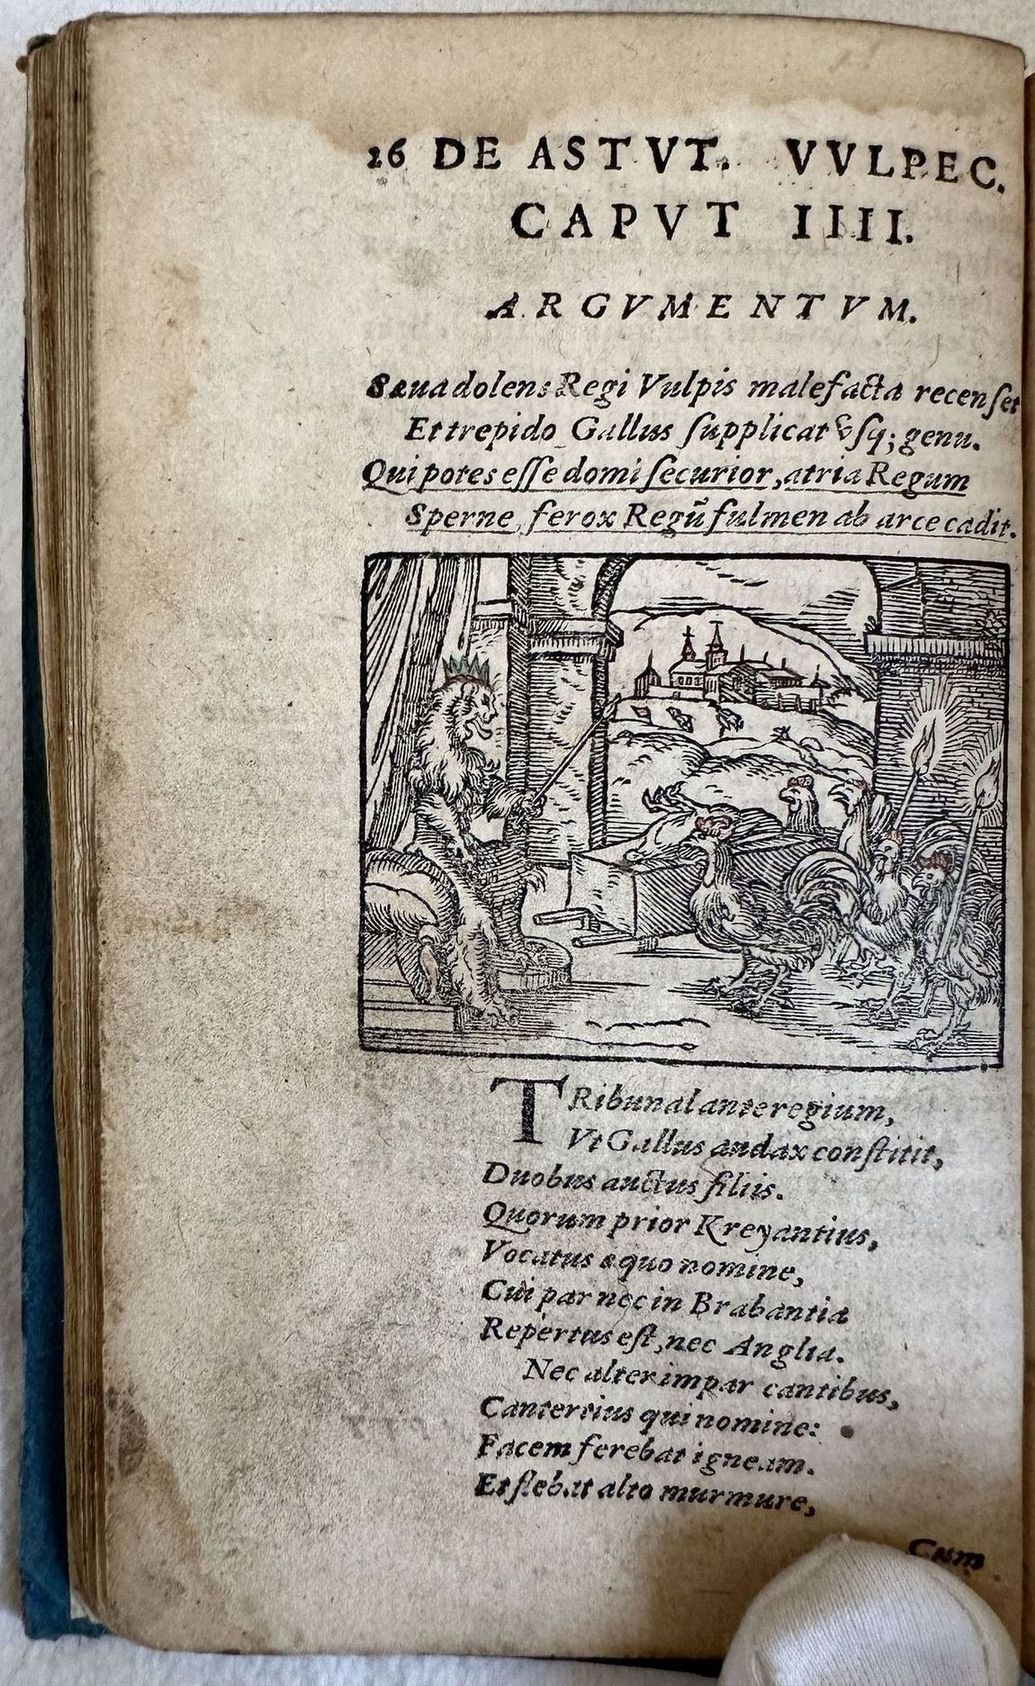 26 DE ASTVT. VVLPEC.
CAPVT IIII.
ARGVMENTVM.
Sæua dolens Regi Vulpis malefacta recenset
Et trepido Gallus supplicat vsq; genu.
Qui potes esse domi securior, atria Regum
Sperne, ferox Regũ fulmen ab arce cadit.
TRibunal ante regium,
Vt Gallus audax constitit,
Duobus auctus filiis.
Quorum prior Kreyantius,
Vocatus æquo nomine,
Cui par nec in Brabantia
Repertus est, nec Anglia.
Nec alter impar cantibus,
Canterrius qui nomine:
Facem ferebat igneam.
Et flebat alto murmure,
Cum